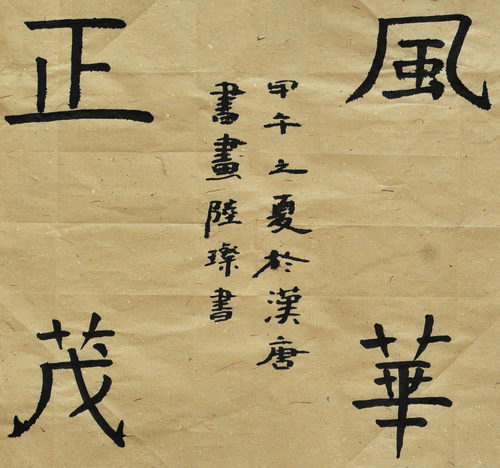 風華
正茂
甲午之夏於漢唐
書畫陸璨書